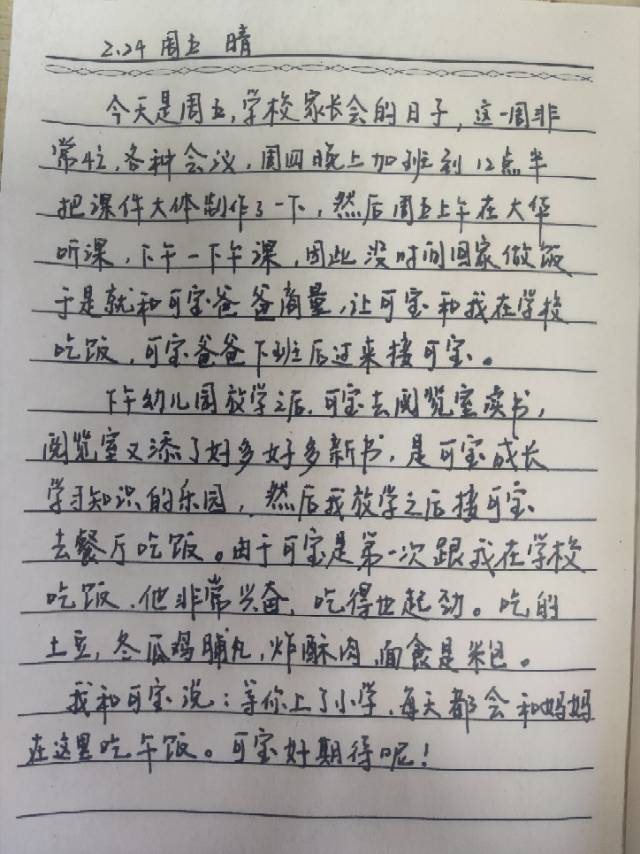 2.24 周五 晴
今天是周五,学校家长会的日子,这一周非
常忙,各种会议,周四晚上加班到12点半
把课件大体制作了一下,然后周五上午在大华
听课,下午一下午课,因此没时间回家做饭
于是就和可宝爸爸商量,让可宝和我在学校
吃饭,可宝爸爸下班后过来接可宝。
下午幼儿园放学之后,可宝去阅览室读书,
阅览室又添了好多好多新书,是可宝成长
学习知识的乐园,然后我放学之后接可宝
去餐厅吃饭。由于可宝是第一次跟我在学校
吃饭,他非常兴奋,吃得也起劲。吃的
土豆,冬瓜鸡脯丸,炸酥肉,面食是米包。
我和可宝说:等你上了小学,每天都会和妈妈
在这里吃午饭。可宝好期待呢!